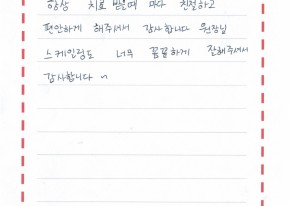 항상 치료 받을때 마다 친절하고
편안하게 해주셔서 감사합니다 원장님
스케일링도 너무 꼼꼼하게 잘해주셔서
감사합니다 ~